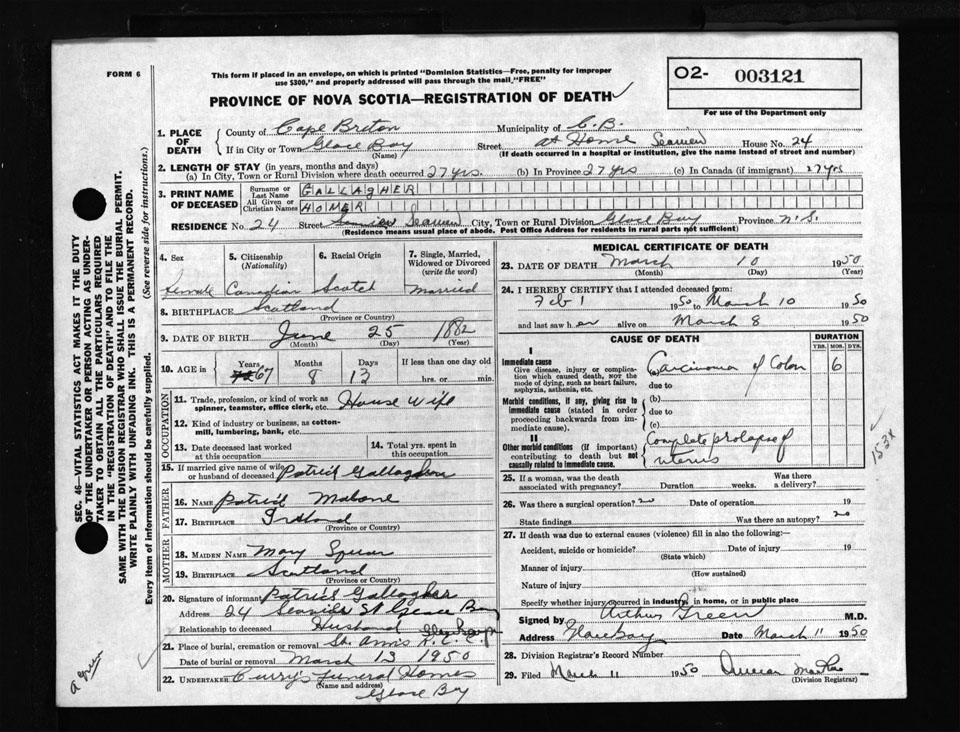 FORM 6
This form if placed in an envelope, on which is printed "Dominion Statistics—Free, penalty for improper
use $300," and properly addressed will pass through the mail, "FREE"
PROVINCE OF NOVA SCOTIA—REGISTRATION OF DEATH
O2- 003121
For use of the Department only
1. PLACE OF DEATH { County of Cape Breton Municipality of C.B.
If in City or Town Glace Bay (Name) Street at Home Seaview House No. 24
(If death occurred in a hospital or institution, give the name instead of street and number)
2. LENGTH OF STAY (in years, months and days)
(a) In City, Town or Rural Division where death occurred 27 yrs. (b) In Province 27 yrs (c) In Canada (if immigrant) 27 yrs
3. PRINT NAME OF DECEASED { Surname or Last Name GALLAGHER
All Given or Christian Names HOMER
RESIDENCE No. 24 Street Seaview City, Town or Rural Division Glace Bay Province N.S.
(Residence means usual place of abode. Post Office Address for residents in rural parts not sufficient)
4. Sex 5. Citizenship (Nationality) 6. Racial Origin 7. Single, Married, Widowed or Divorced (write the word)
Female Canadian Scotch Married
8. BIRTHPLACE Scotland
(Province or Country)
9. DATE OF BIRTH June 25 1882
(Month) (Day) (Year)
10. AGE in { Years Months Days If less than one day old
67 8 13 hrs. or min.
OCCUPATION
11. Trade, profession, or kind of work as spinner, teamster, office clerk, etc. House Wife
12. Kind of industry or business, as cotton-mill, lumbering, bank, etc.
13. Date deceased last worked at this occupation
14. Total yrs. spent in this occupation
15. If married give name of wife or husband of deceased Patrick Gallagher
FATHER
16. NAME Patrick Malone
17. BIRTHPLACE Ireland
(Province or Country)
MOTHER
18. MAIDEN NAME Mary
19. BIRTHPLACE Scotland
(Province or Country)
20. Signature of informant Patrick Gallagher
Address 24 St Glace Bay
Relationship to deceased Husband
21. Place of burial, cremation or removal St. Anns R.C.C.
Date of burial or removal March 13 1950
22. UNDERTAKER Curry's Funeral Homes
(Name and address)
Glace Bay
MEDICAL CERTIFICATE OF DEATH
23. DATE OF DEATH March 10 1950
(Month) (Day) (Year)
24. I HEREBY CERTIFY that I attended deceased from:
Feb 1 1950 to March 10 1950
and last saw her alive on March 8 1950
CAUSE OF DEATH
DURATION
YRS. MOS. DYS.
I
Immediate cause
Give disease, injury or complication which caused death, NOT the mode of dying, such as heart failure, asphyxia, asthenia, etc.
(a) Carcinoma of Colon 6
due to
Morbid conditions, if any, giving rise to immediate cause (stated in order proceeding backwards from immediate cause).
(b)
due to
(c)
II
Other morbid conditions (if important) contributing to death but not causally related to immediate cause.
Complete prolapse of
uterus
153X
25. If a woman, was the death associated with pregnancy? Duration weeks. Was there a delivery?
26. Was there a surgical operation? no Date of operation 19
State findings Was there an autopsy? no
27. If death was due to external causes (violence) fill in also the following:—
Accident, suicide or homicide? Date of injury 19
(State which)
Manner of injury
(How sustained)
Nature of injury
Specify whether injury occurred in industry, in home, or in public place
Signed by Arthur Green M.D.
Address Glace Bay Date March 11 1950
28. Division Registrar's Record Number
29. Filed March 11 1950
(Division Registrar)
SEC. 46—VITAL STATISTICS ACT MAKES IT THE DUTY
OF THE UNDERTAKER OR PERSON ACTING AS UNDER-
TAKER TO OBTAIN ALL THE PARTICULARS REQUIRED
IN THE "REGISTRATION OF DEATH" AND TO FILE THE
SAME WITH THE DIVISION REGISTRAR WHO SHALL ISSUE THE BURIAL PERMIT.
WRITE PLAINLY WITH UNFADING INK. THIS IS A PERMANENT RECORD.
Every item of information should be carefully supplied. (See reverse side for instructions.)
a green